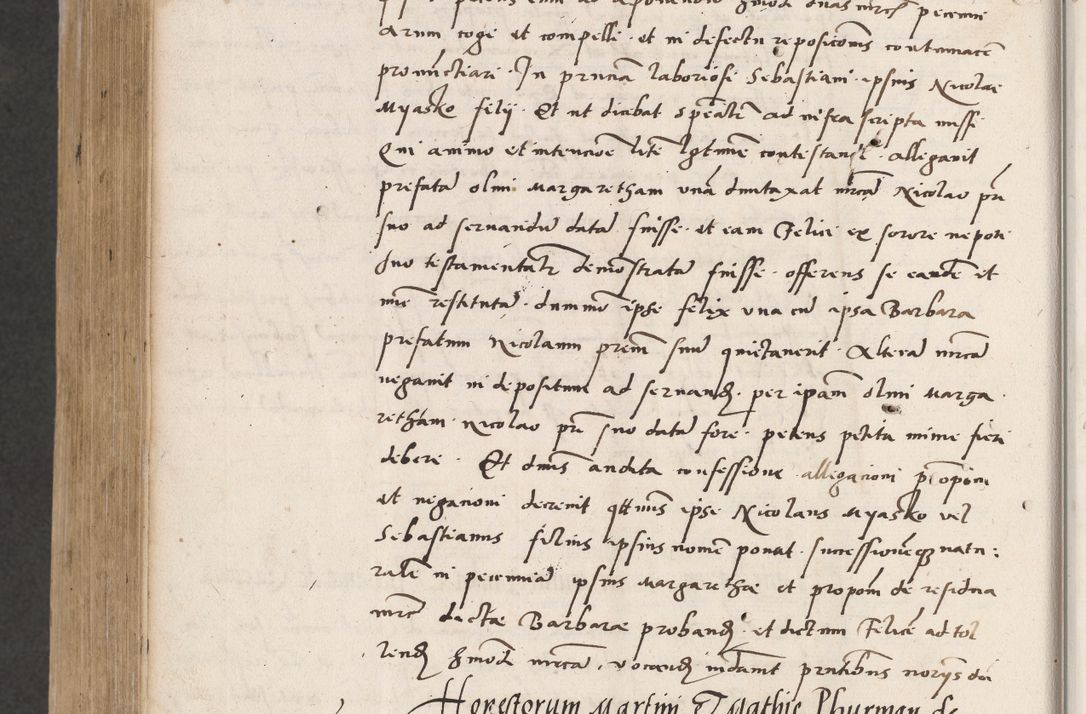 petens eum ad deponendum hmoi duas mrcs pecunii
arum cogi et compelli et in defectu repositionis contumacem
pronunctiari. In pnciam laboriosi Sebastiani ipsius Nicolai
Myasko filij. Et ut dicebat spealem ad infra scripta missi
Qui animo et intencioe litem lgtime contestandi. allegavit
prefatam olim Margaretham unam dumtaxat mrcam Nicolao pri
suo ad servandum datam fuisse. et eam Felici ex sorore nepoti
suo testamentalr demonstratam fuisse. offerens se eandem et
me restituturum. dummo ipse felix una cum ipsa Barbara
prefatum Nicolaum prem suum quietaverit. Alteram mrcam
negavit in depositum ad servand. per ipam olim Marga
retham Nicolao pri suo datam fore. petens petita mime fieri
debere. Et dnus audita confessione allegacioni propoim
et negacioni decrevit qttnus ipse Nicolaus Myasko vel
Sebastianus filius ipsius nomen ponat. successionemque natu:
ralem in pecunia ipsius Margarethae et propom de residua
mrca dictae Barbarae proband. et dictum Felicem ad tol
lend hmoi mrcam, vocand mandavit pntibus norijs da
Honestorum Martini & Mathie Phurman de